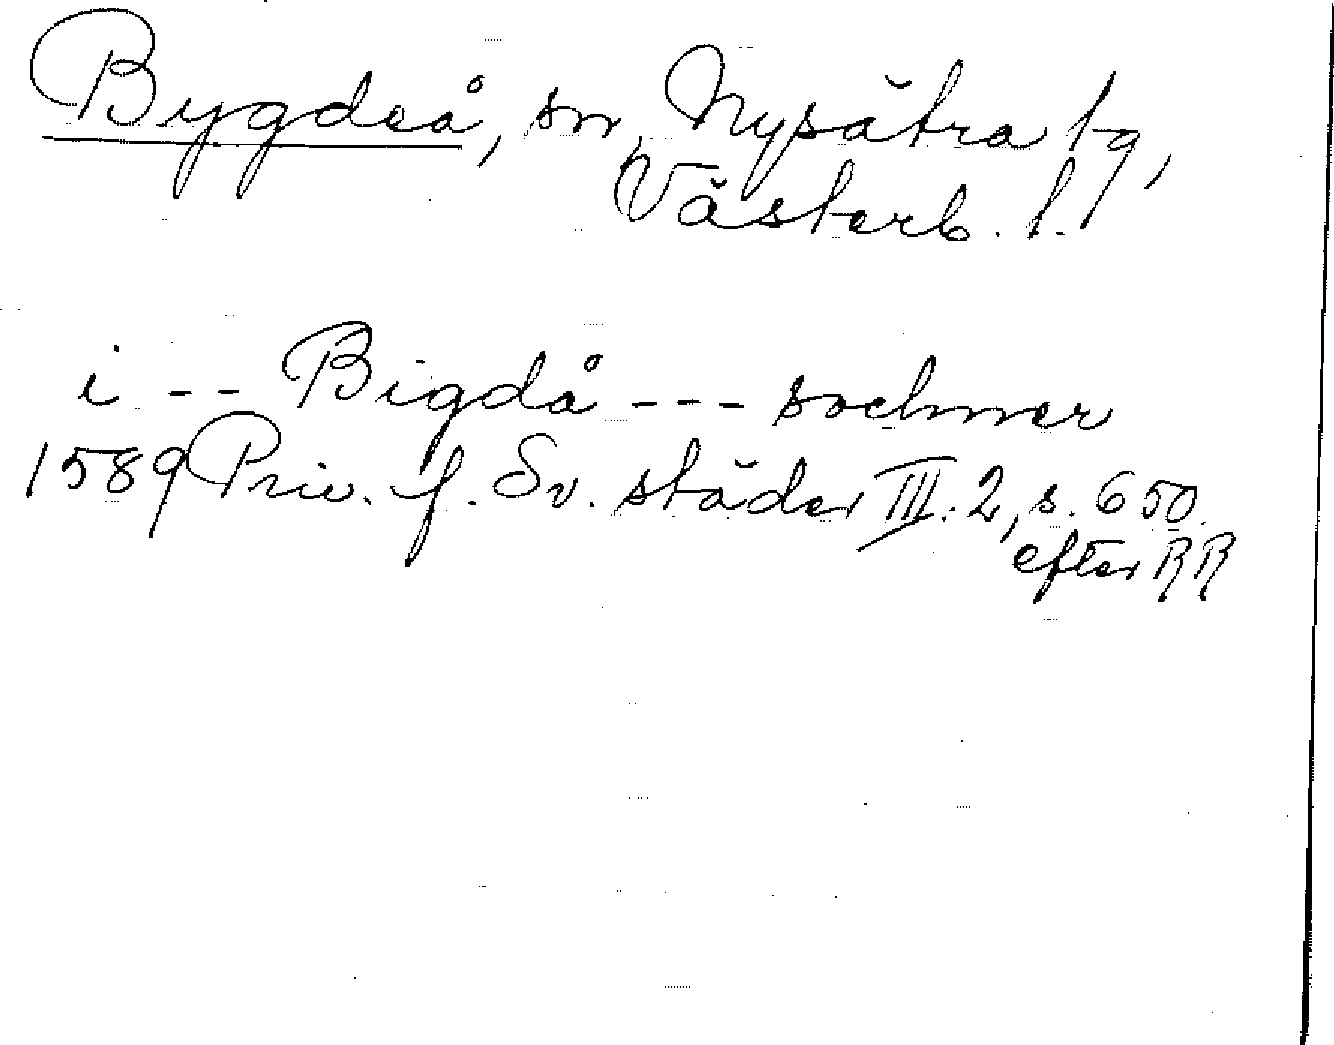 Bygdeå, sn, Nysätra tg,
Västerb. l.
i -- Bigdå --- sochner
1589 Priv. f. Sv. städer III. 2, s. 650.
efter RR